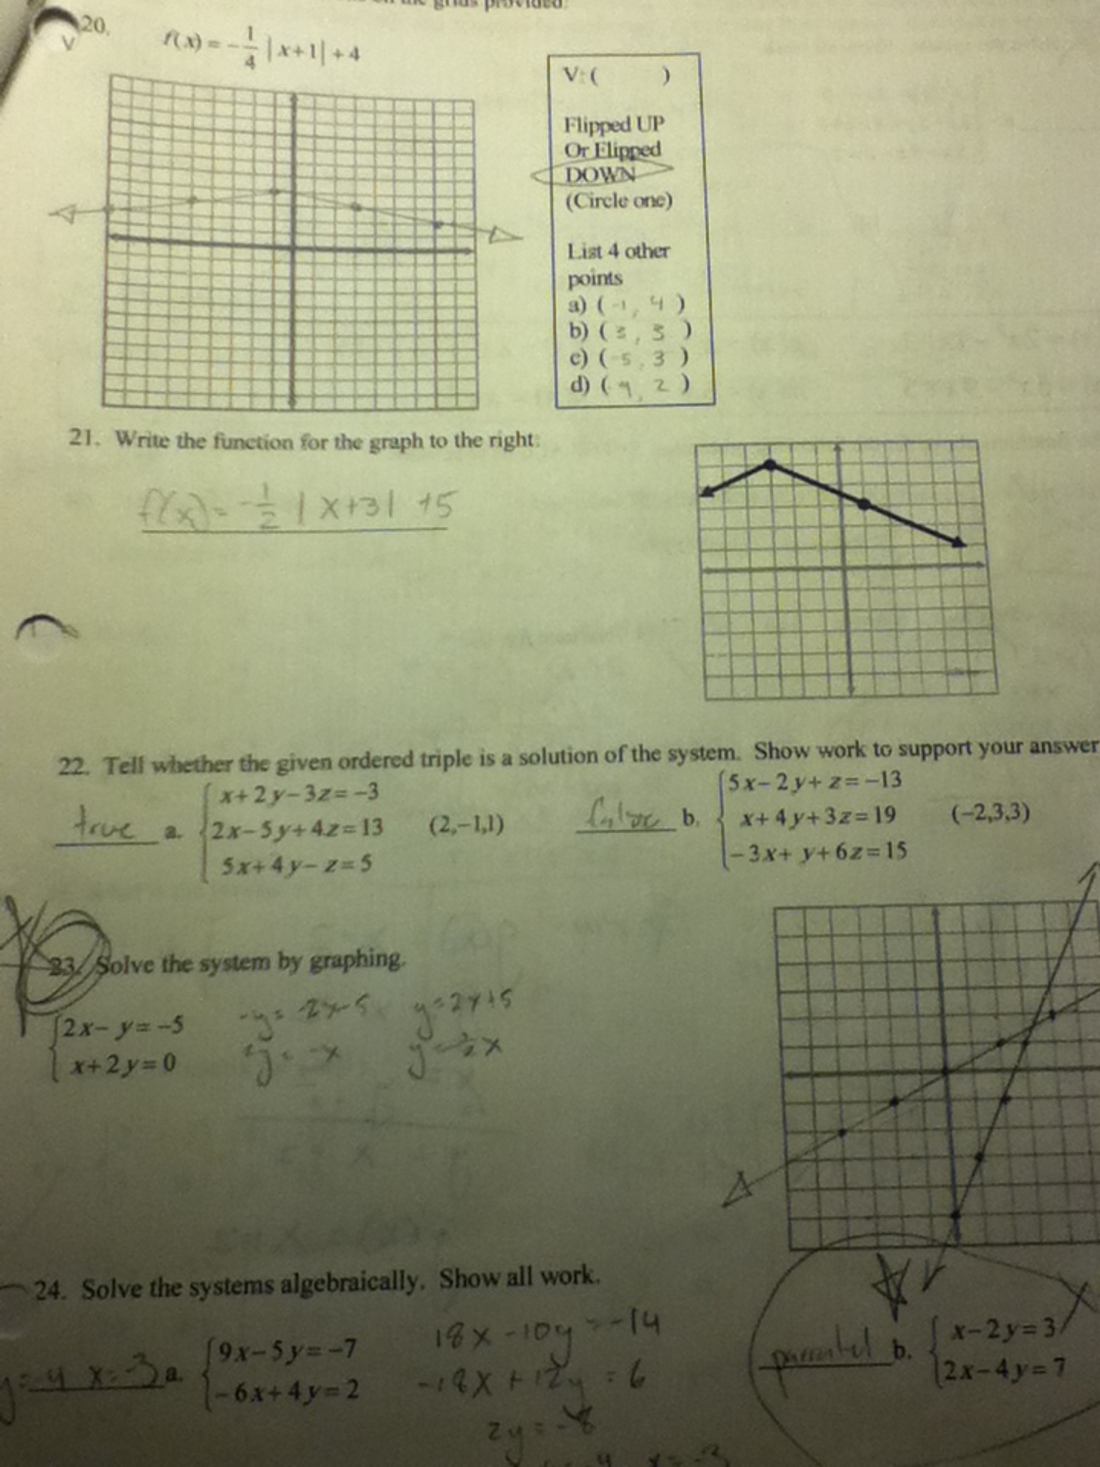 20.
f(x) = -1/4 |x+1| + 4
V: ( )
Flipped UP
Or Flipped
DOWN
(Circle one)
List 4 other
points
a) (-1, 4)
b) (3, 3)
c) (-5, 3)
d) ( , 2)
21. Write the function for the graph to the right.
f(x) = -1/2 |x+3| +5
22. Tell whether the given ordered triple is a solution of the system. Show work to support your answer
true a. x+2y-3z=-3
2x-5y+4z=13 (2,-1,1)
5x+4y-z=5
false b. 5x-2y+z=-13
x+4y+3z=19 (-2,3,3)
-3x+y+6z=15
23. Solve the system by graphing.
2x-y=-5
x+2y=0
-y=-2x-5 y=2x+5
2y=-x
24. Solve the systems algebraically. Show all work.
y=-4 x=-3 a. 9x-5y=-7
-6x+4y=2
18x-10y=-14
-18x+12y=6
2y=-8
x=-3
b. x-2y=3
2x-4y=7